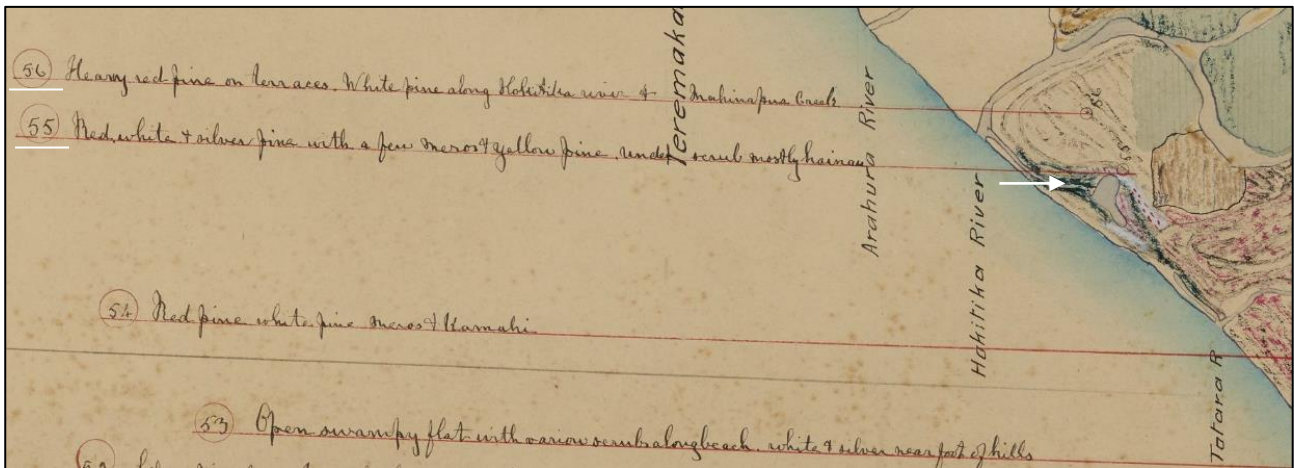 56 Heavy red pine on terraces. White pine along Hokitika river & Mahinapua Creek
55 Red, white & silver pine with a few meros & yellow pine, under scrub mostly hainau
54 Red pine white pine meros & Kamahi
53 Open swampy flat with various scrub along beach. white & silver near foot of hills
52
Teremaka
Arahura River
Hokitika River
Totara R
56
55